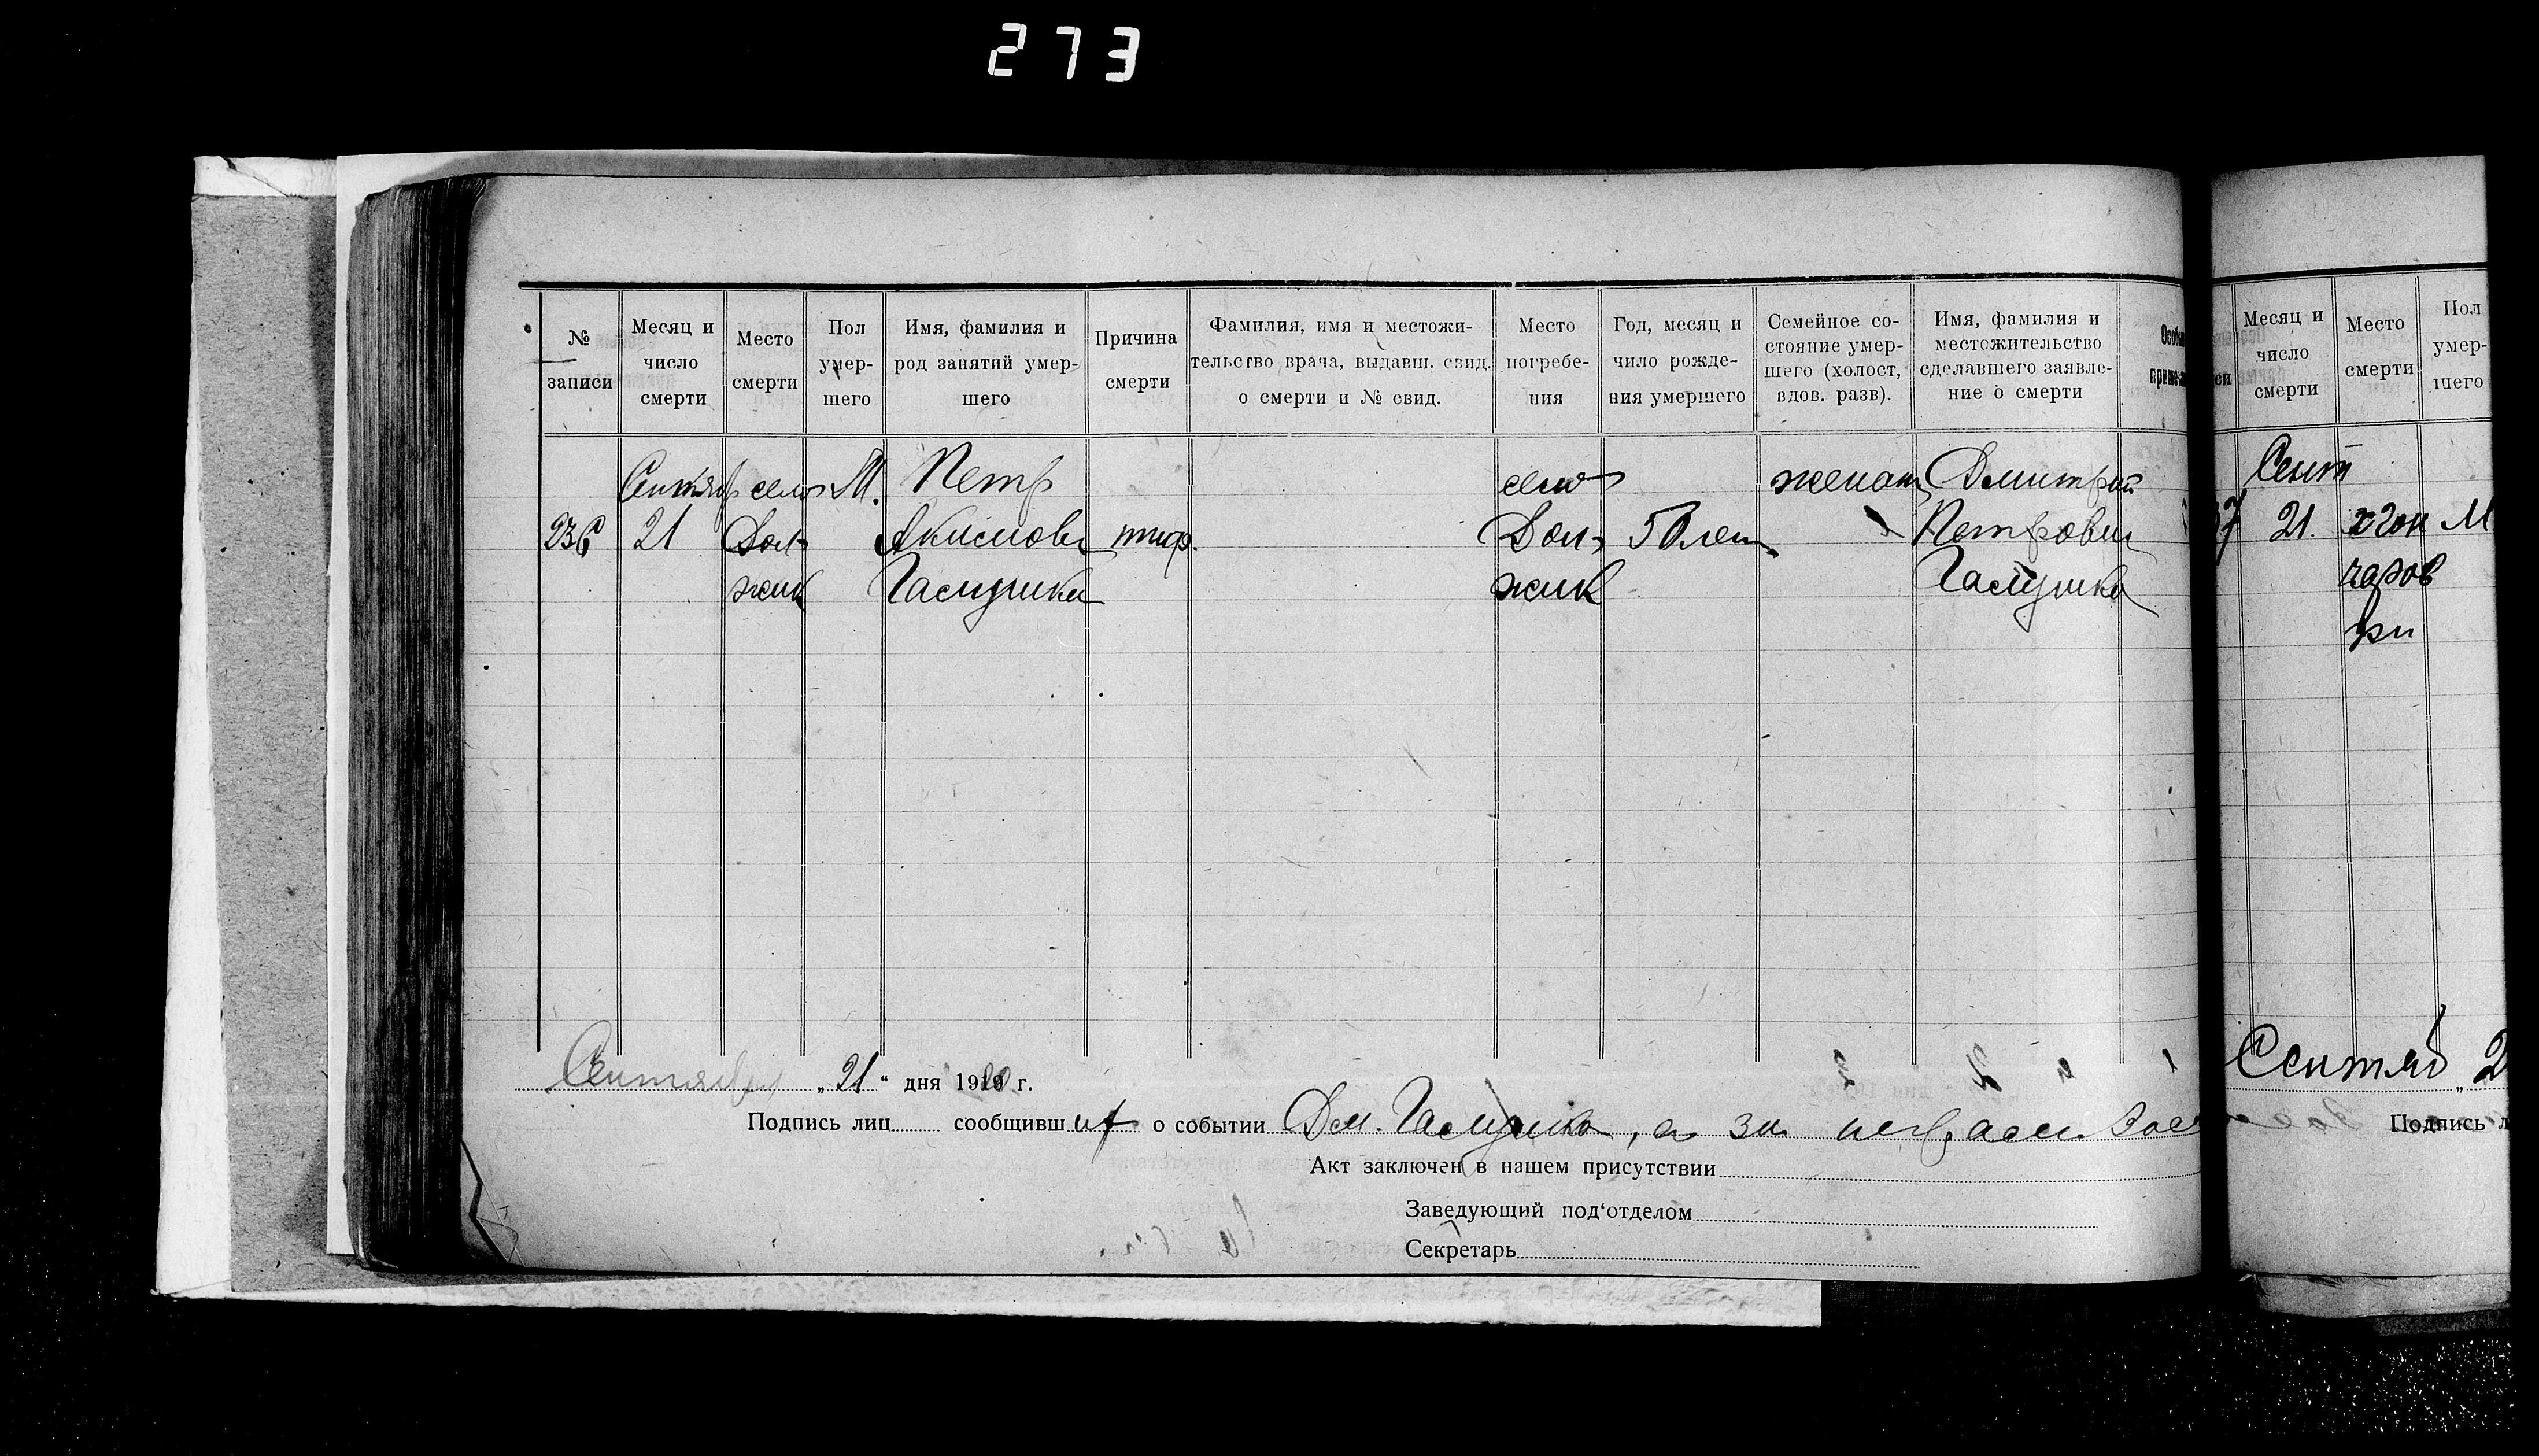 273
№ записи
Месяц и число смерти
Место смерти
Пол умер- шего
Имя, фамилия и род занятий умер- шего
Причина смерти
Фамилия, имя и местожи- тельство врача, выдавш. свид. о смерти и № свид.
Место погребе- ния
Год, месяц и чило рожде- ния умершего
Семейное со- стояние умер- шего (холост, вдов. разв).
Имя, фамилия и местожительство сделавшего заявле- ние о смерти
236
Сентяб 21
село Дол- жик
М.
Петр Акимови Галушка
тиф.
село Дол- жик
50 лет
женат
Дмитрий Петрович Галушка
Сентября „21“ дня 1920 г.
Подпись лиц сообщивш их о событии Дм. Галушка, а за неграм.
Акт заключен в нашем присутствии
Заведующий под‘отделом
Секретарь
Месяц и число смерти
Место смерти
Пол умер- шего
37
Сент 21.
М
Сентяб „2
Подпись л